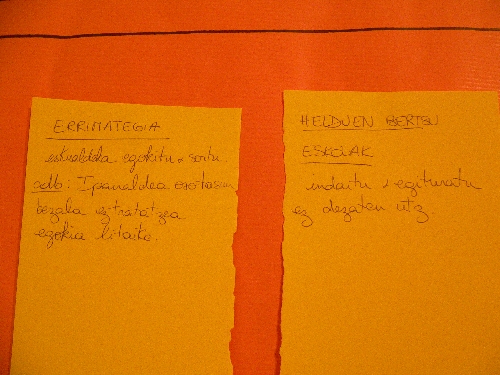 ERRIMATEGIA
eskualdeka egokitu & sortu
adb: Iparraldea
bezala ez tratatzea
egokia litaike
HELDUEN BERTSU
ESKOLAK
indartu, egituratu
ez dezaten utz